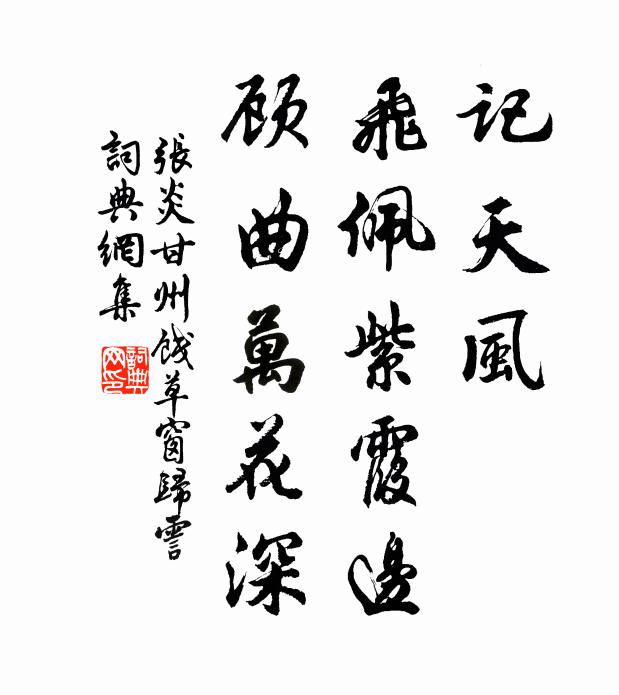 記天風
飛佩紫霞邊
顧曲萬花深
張炎甘州餞草窗歸霅
詞典網集
詞典网印